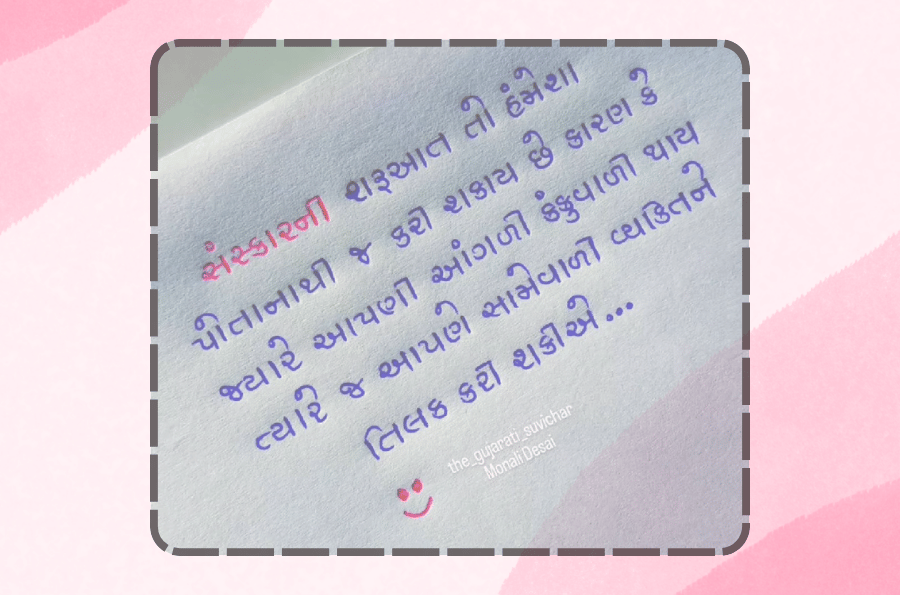 સંસ્કારની શરૂઆત તો હંમેશા
પોતાનાથી જ કરી શકાય છે કારણ કે
જ્યારે આપણી આંગળી કંકુવાળી થાય
ત્યારે જ આપણે સામેવાળી વ્યકિતને
તિલક કરી શકીએ...
the_gujarati_suvichar
Monali Desai